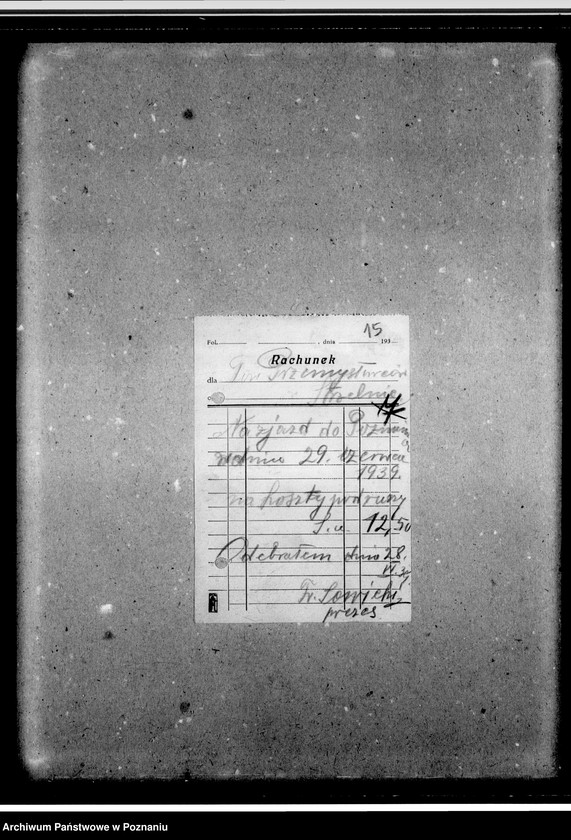 15
Fol. , dnia 193
Rachunek
dla Tow. Przemysłowców
Strzelnie
Na zjazd do Poznania
w dniu 29. czerwca
1939.
na koszty podróży
S.u. 12,50
Odebrałem dnia 28.
VI.39.
Fr. Sowicki
prezes
Archiwum Państwowe w Poznaniu